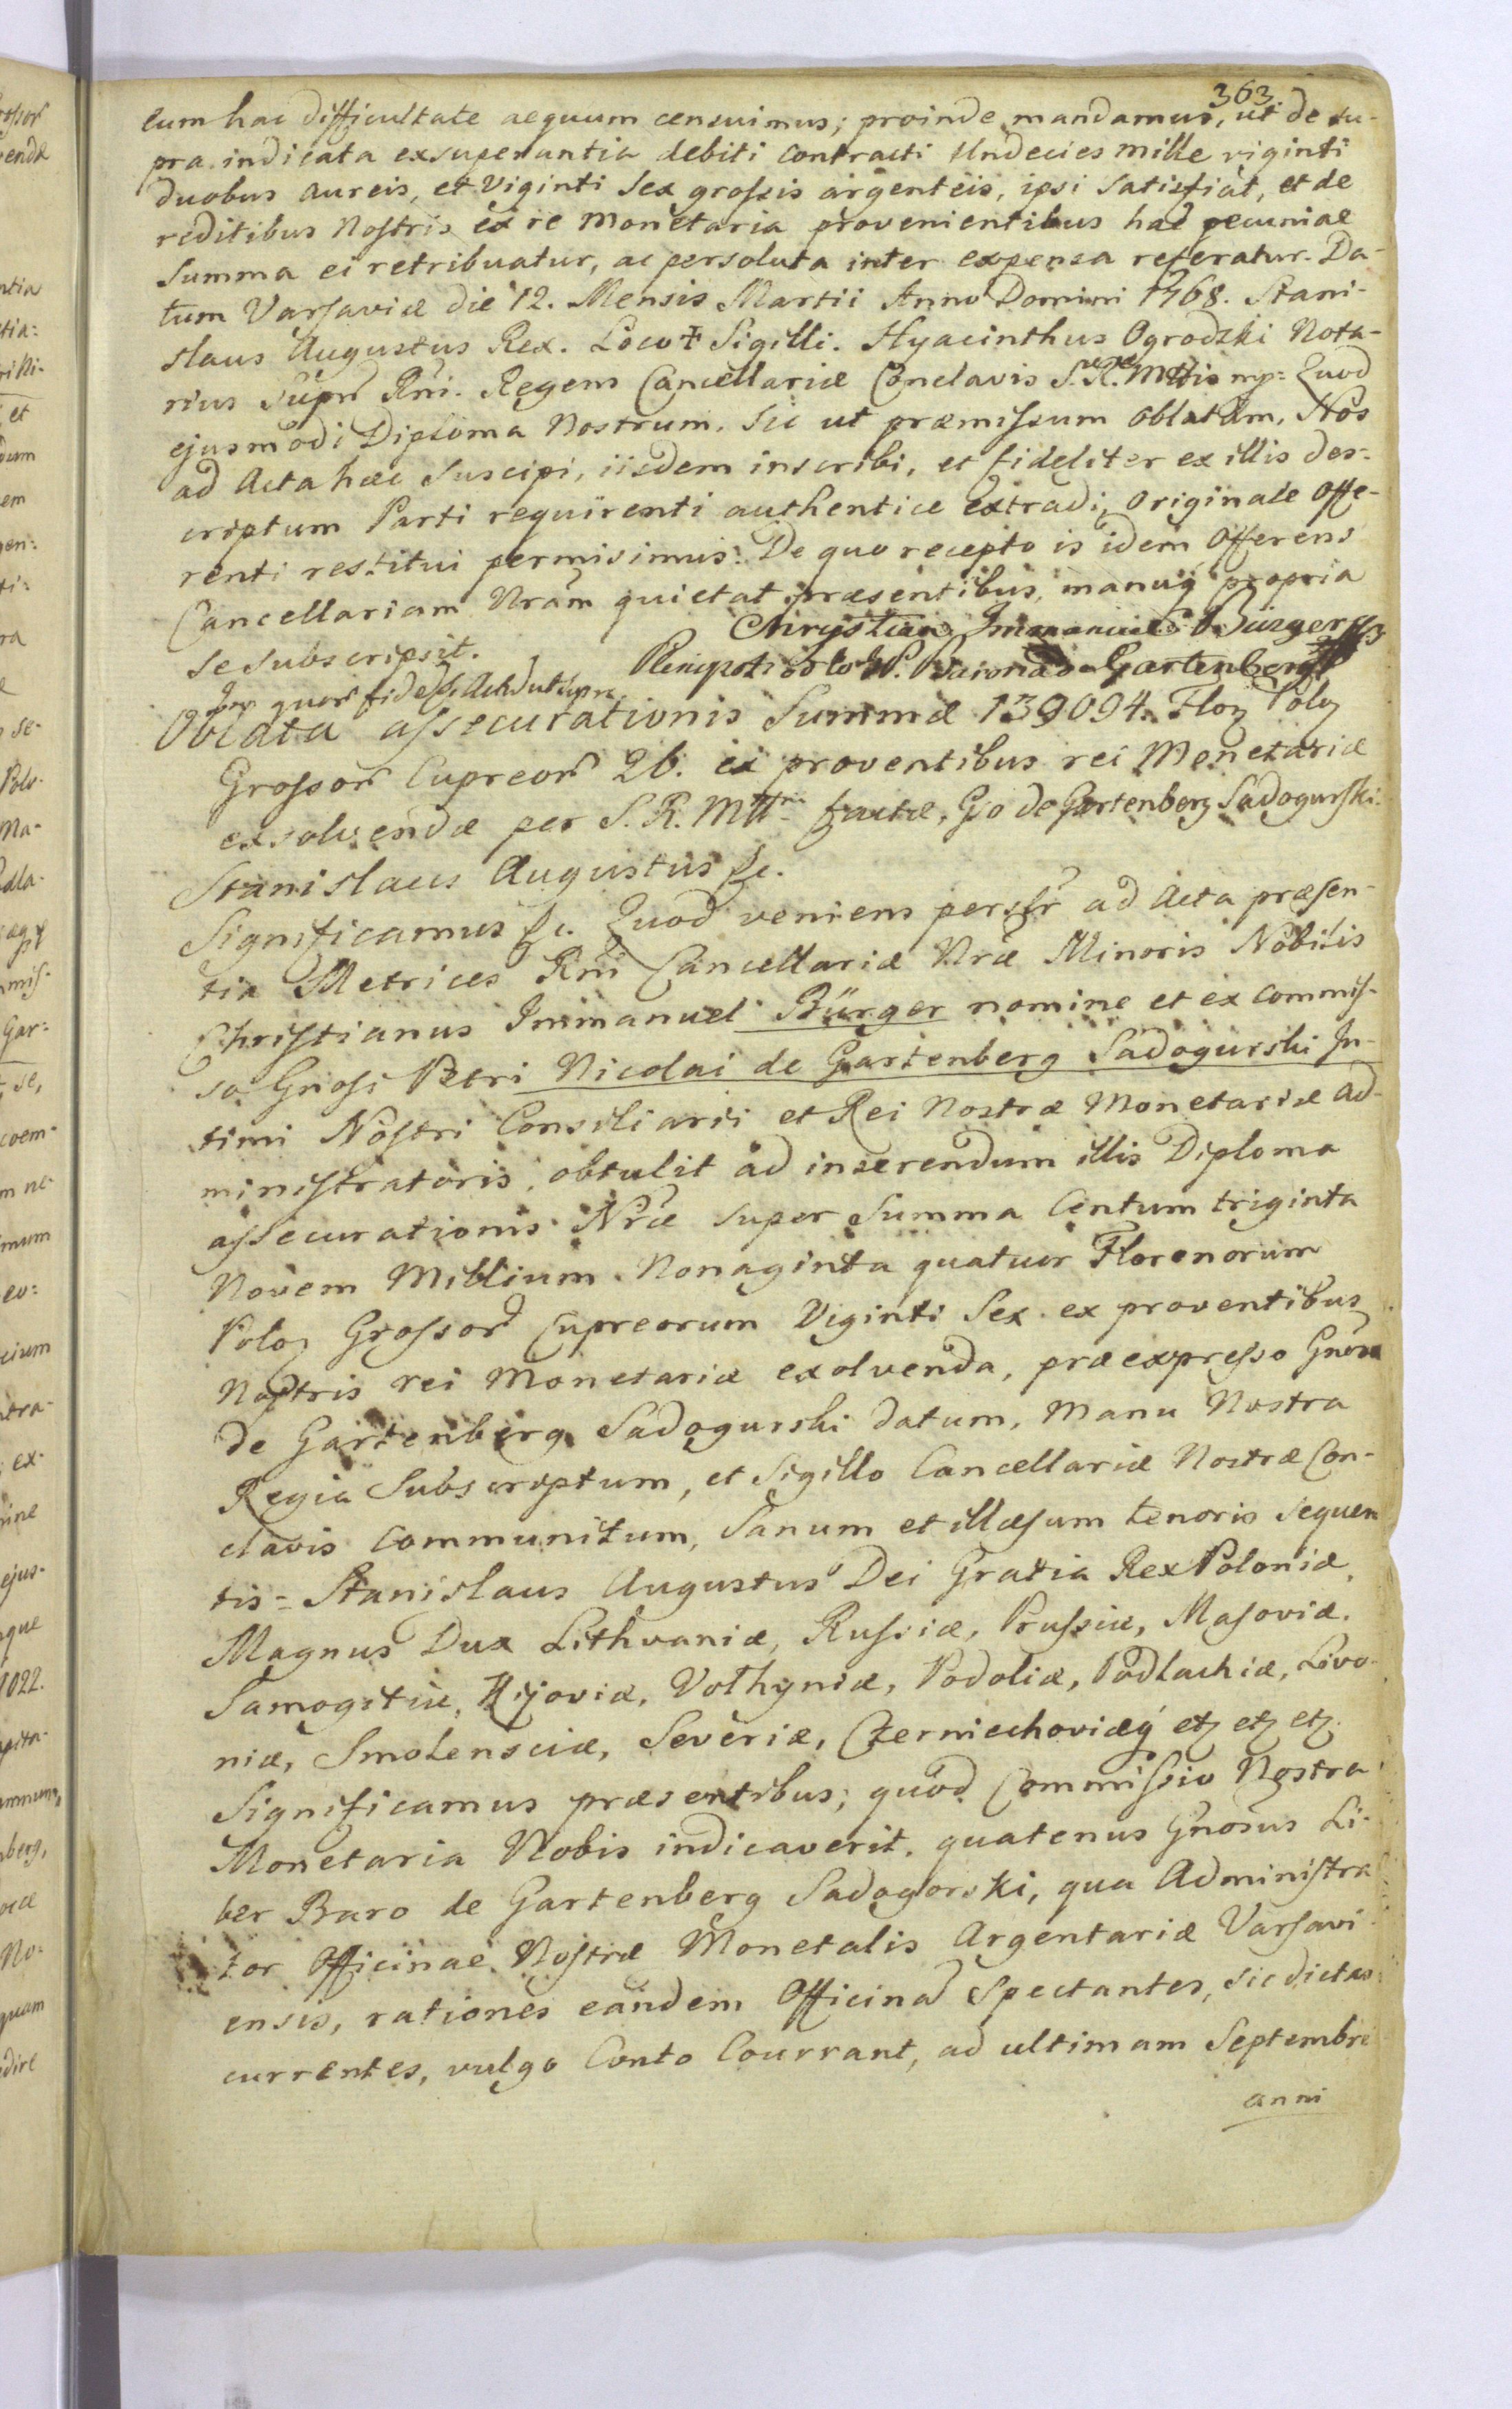 363.
eum hac difficultate aequum censuimus; proinde mandamus, ut de su-
pra indicata exsuperantia debiti contracti Undecies mille viginti
duobus aureis, et Viginti Sex grossis argenteis, ipsi satisfiat, et de
reditibus Nostris ex re Monetaria provenientibus haec pecuniae
Summa ei retribuatur, ac persoluta inter expensa referatur. Da-
tum Varsaviæ die 12. Mensis Martii Anno Domini 1768. Stani-
slaus Augustus Rex. Loco + Sigilli. Hyacinthus Ogrodzki Nota-
rius Supr Rni. Regens Cancellariæ Conclavis S. R. Mttis mp: Quod
ejusmodi Diploma Nostrum. Sic ut præmissum oblatum, Nos
ad Acta hæc Suscipi, iisdem inscribi, et fideliter ex illis des-
criptum Parti requirenti authentice extradi, Originale Offe-
renti restitui permisimus. De quo recepto is idem Offerens
Cancellariam Nram quietat præsentibus, manuq propria
se subscripsit.
Chrystian Immanuel Bürger
Plenipot: od Barona de Gartenberg
Oblata assecurationis Summæ 139094. Flor Polo
Grossor Cupreor 26. ex proventibus rei Monetariæ
exsolvendæ per S. R. Mtt factæ, Gso de Gartenberg Sadogurski.
Stanislaus Augustus &c.
Significamus &c. Quod veniens persr ad Acta præsen-
tia Metrices Rni Cancellariæ Nræ Minoris Nobilis
Christianus Immanuel Bürger nomine et ex commis-
so Gnosi Petri Nicolai de Gartenberg Sadogurski In-
timi Nostri Consiliarii et Rei Nostræ Monetariæ Ad-
ministratoris, obtulit ad inserendum illis Diploma
assecurationis Nræ super Summa Centum triginta
Novem Millium Nonaginta quatuor Florenorum
Polo Grossor Cupreorum Viginti Sex ex proventibus
Nostris rei Monetariæ exolvenda, præexpresso Gnoso
de Gartenberg Sadogurski datum, Manu Nostra
Regia Subscriptum, et Sigillo Cancellariæ Nostræ Con-
clavis Communitum, Sanum et illæsum tenoris sequen
tis = Stanislaus Augustus Dei Gratia Rex Poloniæ,
Magnus Dux Lithvaniæ, Russiæ, Prussiæ, Masoviæ,
Samogitiæ, Kijoviæ, Volhyniæ, Podoliæ, Podlachiæ, Livo-
niæ, Smolensciæ, Severiæ, Czerniechoviæq etz etz etz.
Significamus præsentibus; quod Commissio Nostra
Monetaria Nobis indicaverit, quatenus Gnosus Li-
ber Baro de Gartenberg Sadogorski, qua Administra
tor Officinae Nostræ Monetalis Argentariæ Varsavi-
ensis, rationes eandem Officina Spectantes, sic dictas
currentes, vulgo Conto Courrant, ad ultimam Septembri
anni